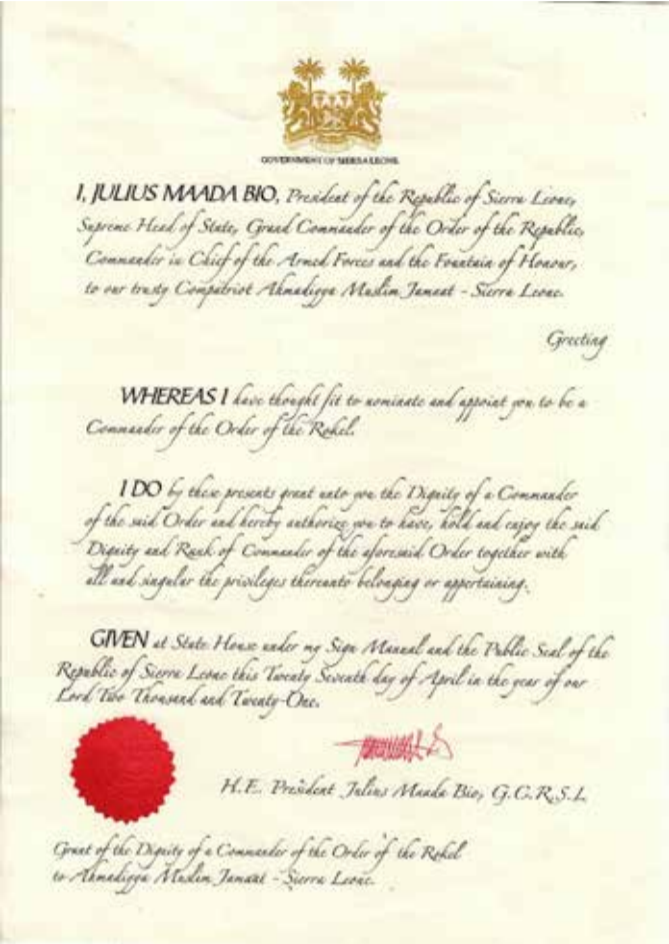 GOVERNMENT OF SIERRA LEONE
I, JULIUS MAADA BIO, President of the Republic of Sierra Leone,
Supreme Head of State, Grand Commander of the Order of the Republic,
Commander in Chief of the Armed Forces and the Fountain of Honour,
to our trusty Compatriot Ahmadiyya Muslim Jamaat - Sierra Leone.
Greeting
WHEREAS I have thought fit to nominate and appoint you to be a
Commander of the Order of the Rokel.
I DO by these presents grant unto you the Dignity of a Commander
of the said Order and hereby authorize you to have, hold and enjoy the said
Dignity and Rank of Commander of the aforesaid Order together with
all and singular the privileges thereunto belonging or appertaining.
GIVEN at State House under my Sign Manual and the Public Seal of the
Republic of Sierra Leone this Twenty Seventh day of April in the year of our
Lord Two Thousand and Twenty-One.
H.E. President Julius Maada Bio, G.C.R.S.L
Grant of the Dignity of a Commander of the Order of the Rokel
to Ahmadiyya Muslim Jamaat - Sierra Leone.